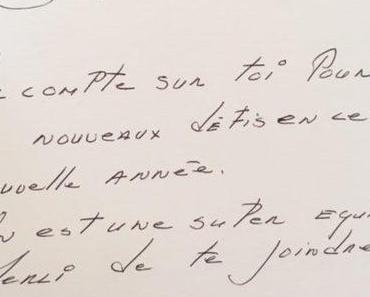 compte sur toi pour
nouveaux défis en ce
uvelle année.
est une super équ
merci de te joindre